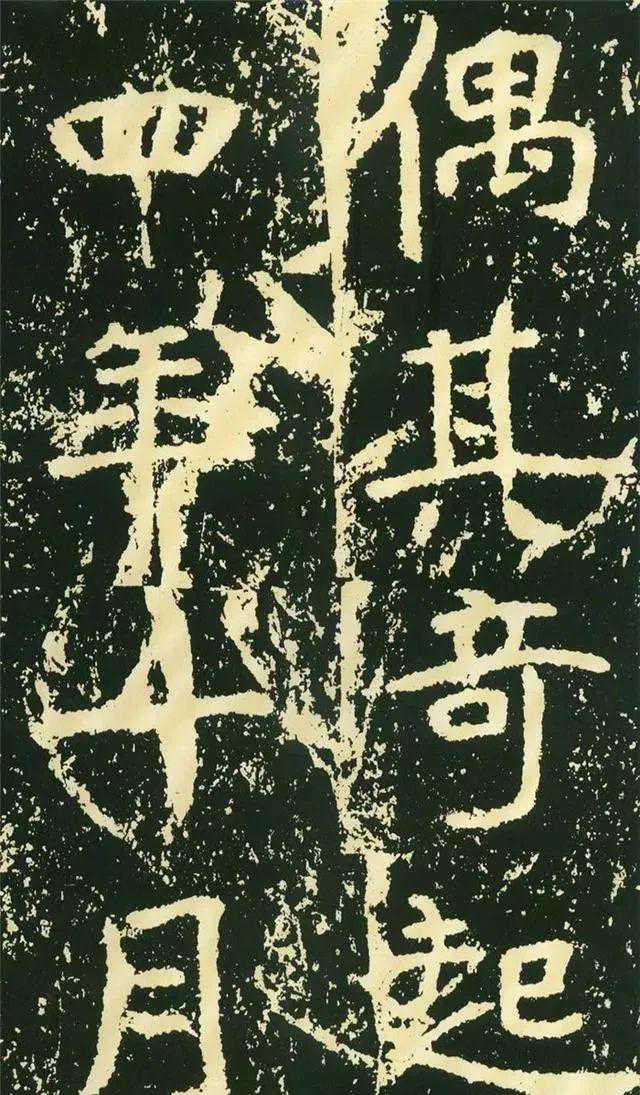 偶其奇起
四年十月